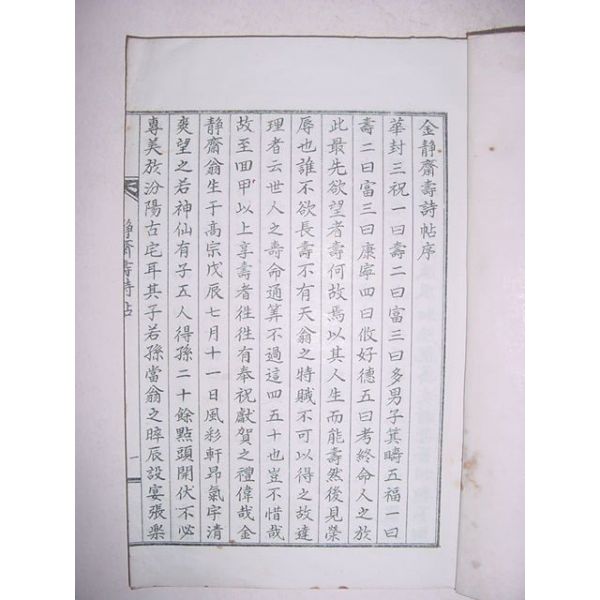 金靜齋壽詩帖序
華封三祝一曰壽二曰富三曰多男子箕疇五福一曰
壽二曰富三曰康寧四曰攸好德五曰考終命人之於
此最先欲望者壽何故焉以其人生而能壽然後見榮
辱也誰不欲長壽不有天翁之特賦不可以得之故達
理者云世人之壽命通筭不過這四五十也豈不惜哉
故至回甲以上享壽者徃徃有奉祝獻賀之禮偉哉金
靜齋翁生于高宗戊辰七月十一日風彩軒昂氣宇清
爽望之若神仙有子五人得孫二十餘點頭開伏不必
專美於汾陽古宅耳其子若孫當翁之晬辰設宴張樂
靜齋壽詩帖
一